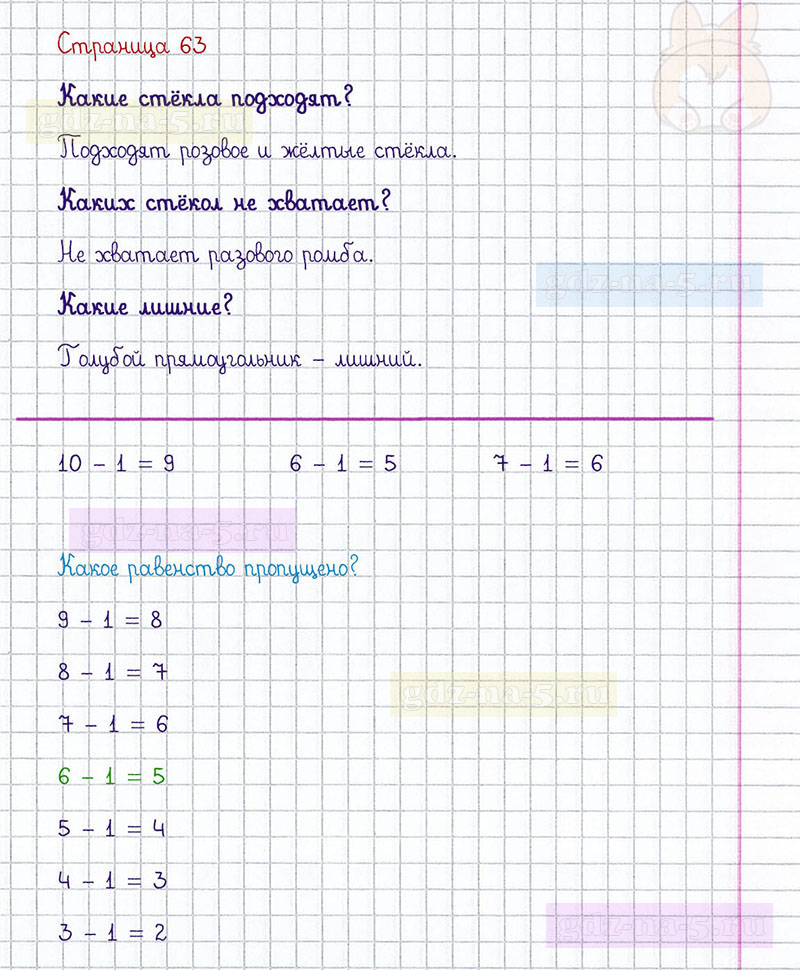 Страница 63
Какие стёкла подходят?
gdz-na-5.ru
Подходят розовое и жёлтые стёкла.
Каких стёкол не хватает?
Не хватает разового ромба.
gdz-na-5.ru
Какие лишние?
Голубой прямоугольник – лишний.
10 – 1 = 9 6 – 1 = 5 7 – 1 = 6
gdz-na-5.ru
Какое равенство пропущено?
9 – 1 = 8
8 – 1 = 7
gdz-na-5.ru
7 – 1 = 6
6 – 1 = 5
5 – 1 = 4
4 – 1 = 3
3 – 1 = 2
gdz-na-5.ru